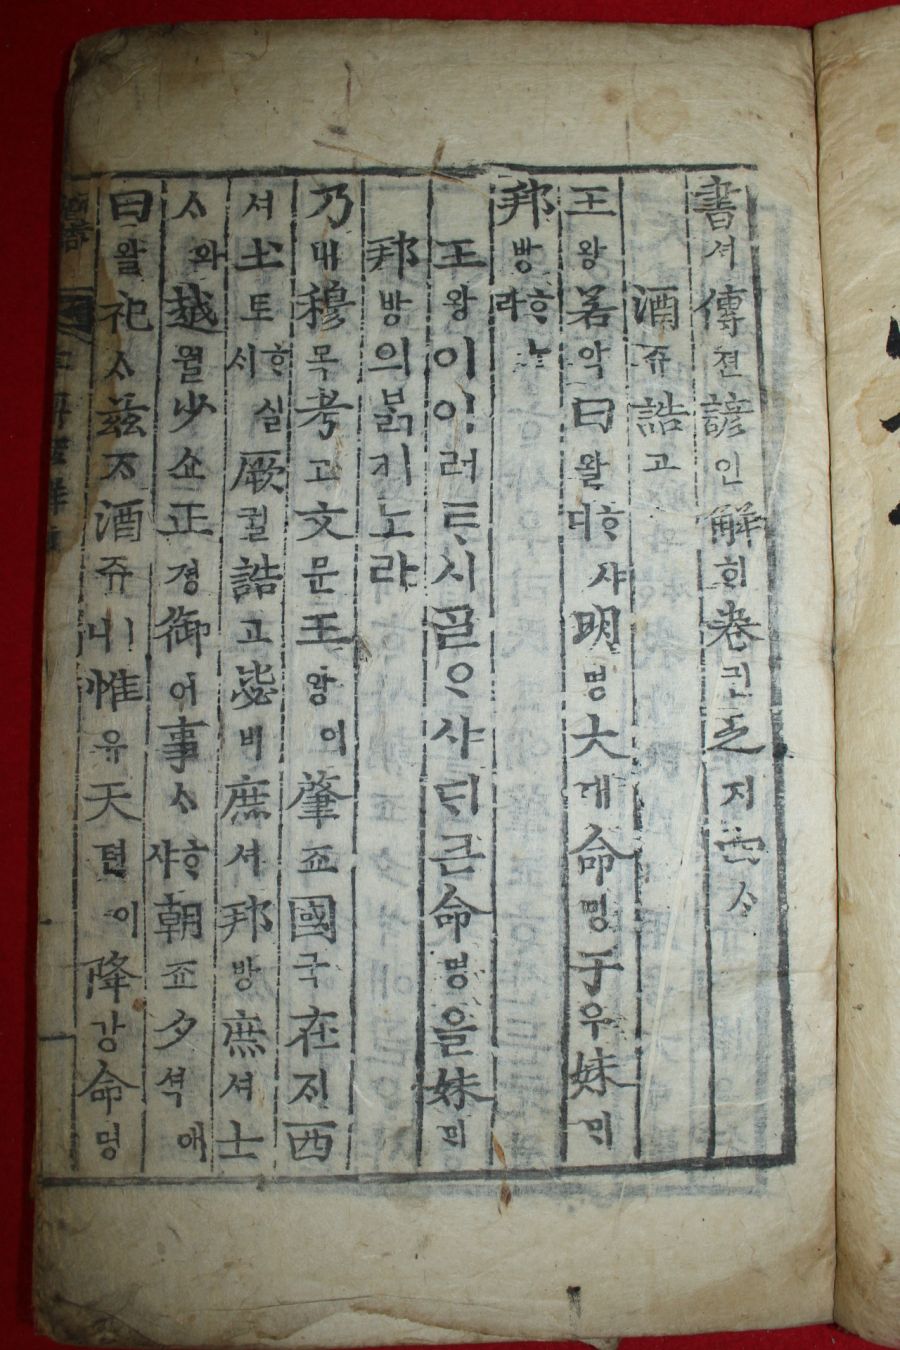 書셔傳젼諺언解ᄒᆡ卷권之지四ᄉᆞ
酒쥬誥고
王왕若약曰왈ᄒᆞ샤ᄃᆡ明명大대命명于우妹ᄆᆡ
邦방ᄒᆞ노라
王왕이이러ᄐᆞ시ᄀᆞᆯᄋᆞ샤ᄃᆡ큰命명을妹ᄆᆡ
邦방의ᄇᆞᆰ키노라
乃내穆목考고文문王왕이肇죠國국在ᄌᆡ西
셔土토ᄒᆞ실ᄉᆡ厥궐誥고毖비庶셔邦방庶셔士
ᄉᆞ와越월少쇼正졍御어事ᄉᆞᄒᆞ샤朝죠夕셕애
曰왈祀ᄉᆞ玆ᄌᆞ酒쥬ㅣ니惟유天텬이降강命명